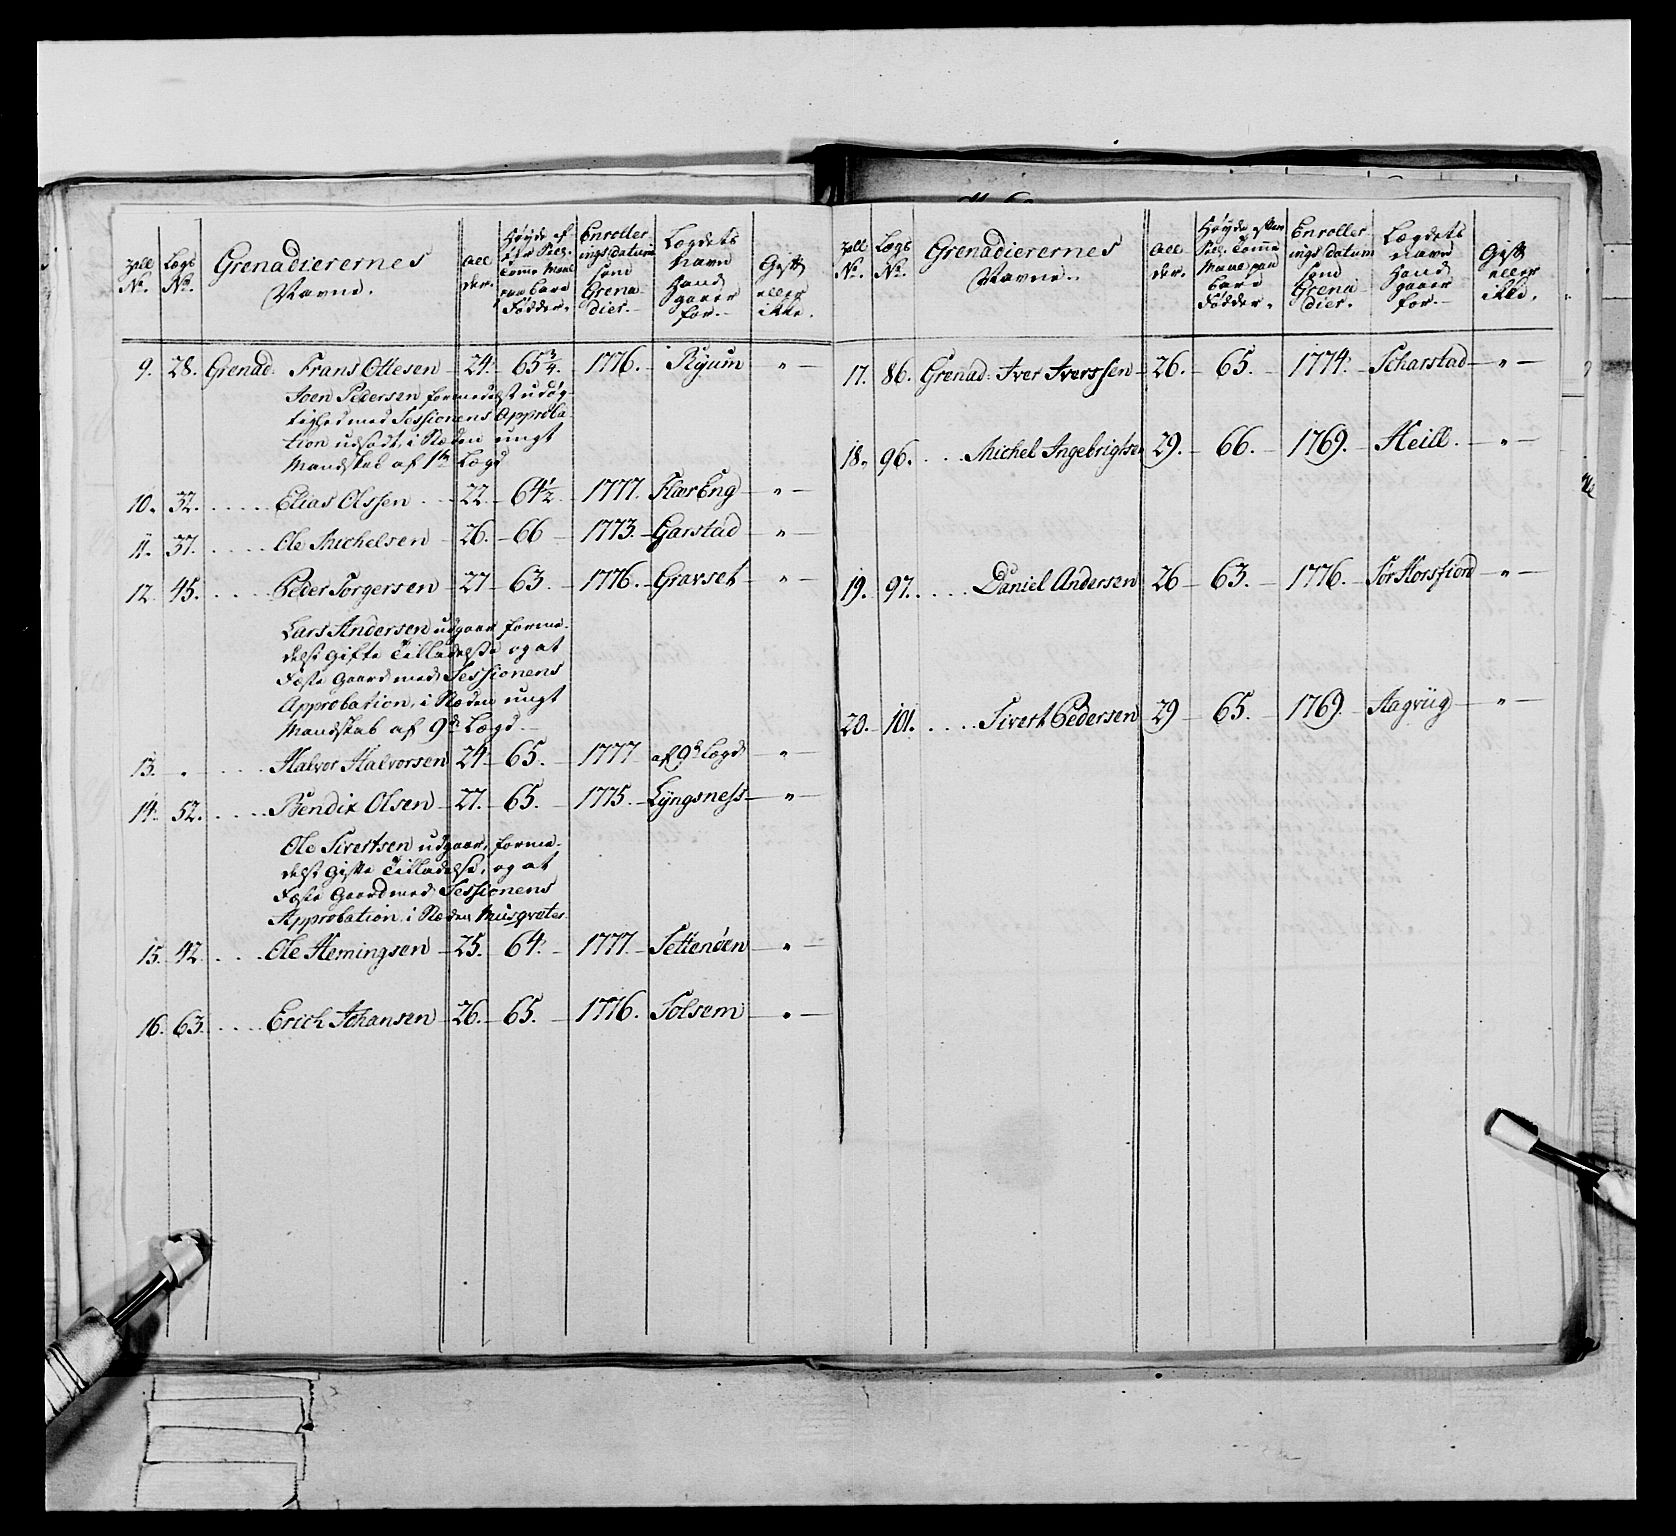 Tall No. Lægs No. Grenadierernes Navne. All der. Høyde efter Siel. Tomme Maal paa bare Fødder. Enrollerings datum som Grenadier. Lægdets Navn hand gaaer for. Gift eller ikke.
9. 28. Grenad: Frans Ottesen 24. 65 3/4. 1776. Ryum "
Joen Pedersen formedelst udög-
tighed med Sessionens Approba-
tion udsadt, i Stæden ungt
Mandskab af 1ste Lægd
10. 32. Elias Olssen 22. 64 1/2. 1777. FlærEng "
11. 37. Ole Michelsen 26. 66 1773. Garstad "
12. 45. Peder Torgersen 27 63. 1776. Gravset "
Lars Andersen udgaar forme-
delst gifte Tilladelse og at
Fæste Gaard med Sessionens
Approbation, i Stæden ungt
Mandskab af 9de Lægd
13. " Halvor Halvorsen 24. 65. 1777 af 9de Lægd "
14. 52. Bendix Olsen 27. 65. 1775. Lÿngsness "
Ole Sivertsen udgaar, forme-
delst gifte Tilladelse, og at
Fæste Gaard med Sessionens
Approbation, i Stæden Musqveter
15. 42. Ole Hemingsen 25. 64. 1777. Settenöen "
16. 63. Erich Johansen 26. 65. 1776. Solsem "
Tall No. Lægs No. Grenadierernes Navne. All der. Høyde efter Siel. Tomme Maal paa bare Födder. Enrollerings datum som Grenadier. Lægdets navn hand gaaer for. Gift eller ikke.
17. 86. Grenad: Iver Iverssen 26. 65. 1774. Scharstad "
18. 96. Michel Ingebrigtsen 29. 66. 1769. Heill. "
19. 97. Daniel Andersen 26 63. 1776. Sör Horsfiord "
20. 101. Sivert Pedersen 29 65. 1769. Aagviig "